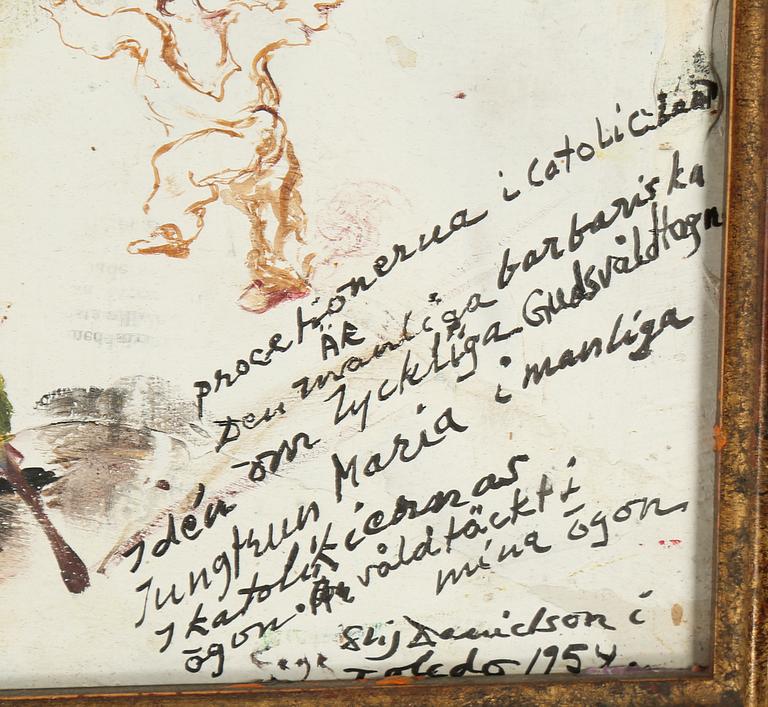 procetionerna i catolicismen
ÄR
Den manliga barbariska
Idén om lyckliga Gudsvåldtagn
Jungfrun Maria i manliga
katolikernas
ögon. Är våldtäckt i
mina ögon
Stig Danielson i
Toledo 1954